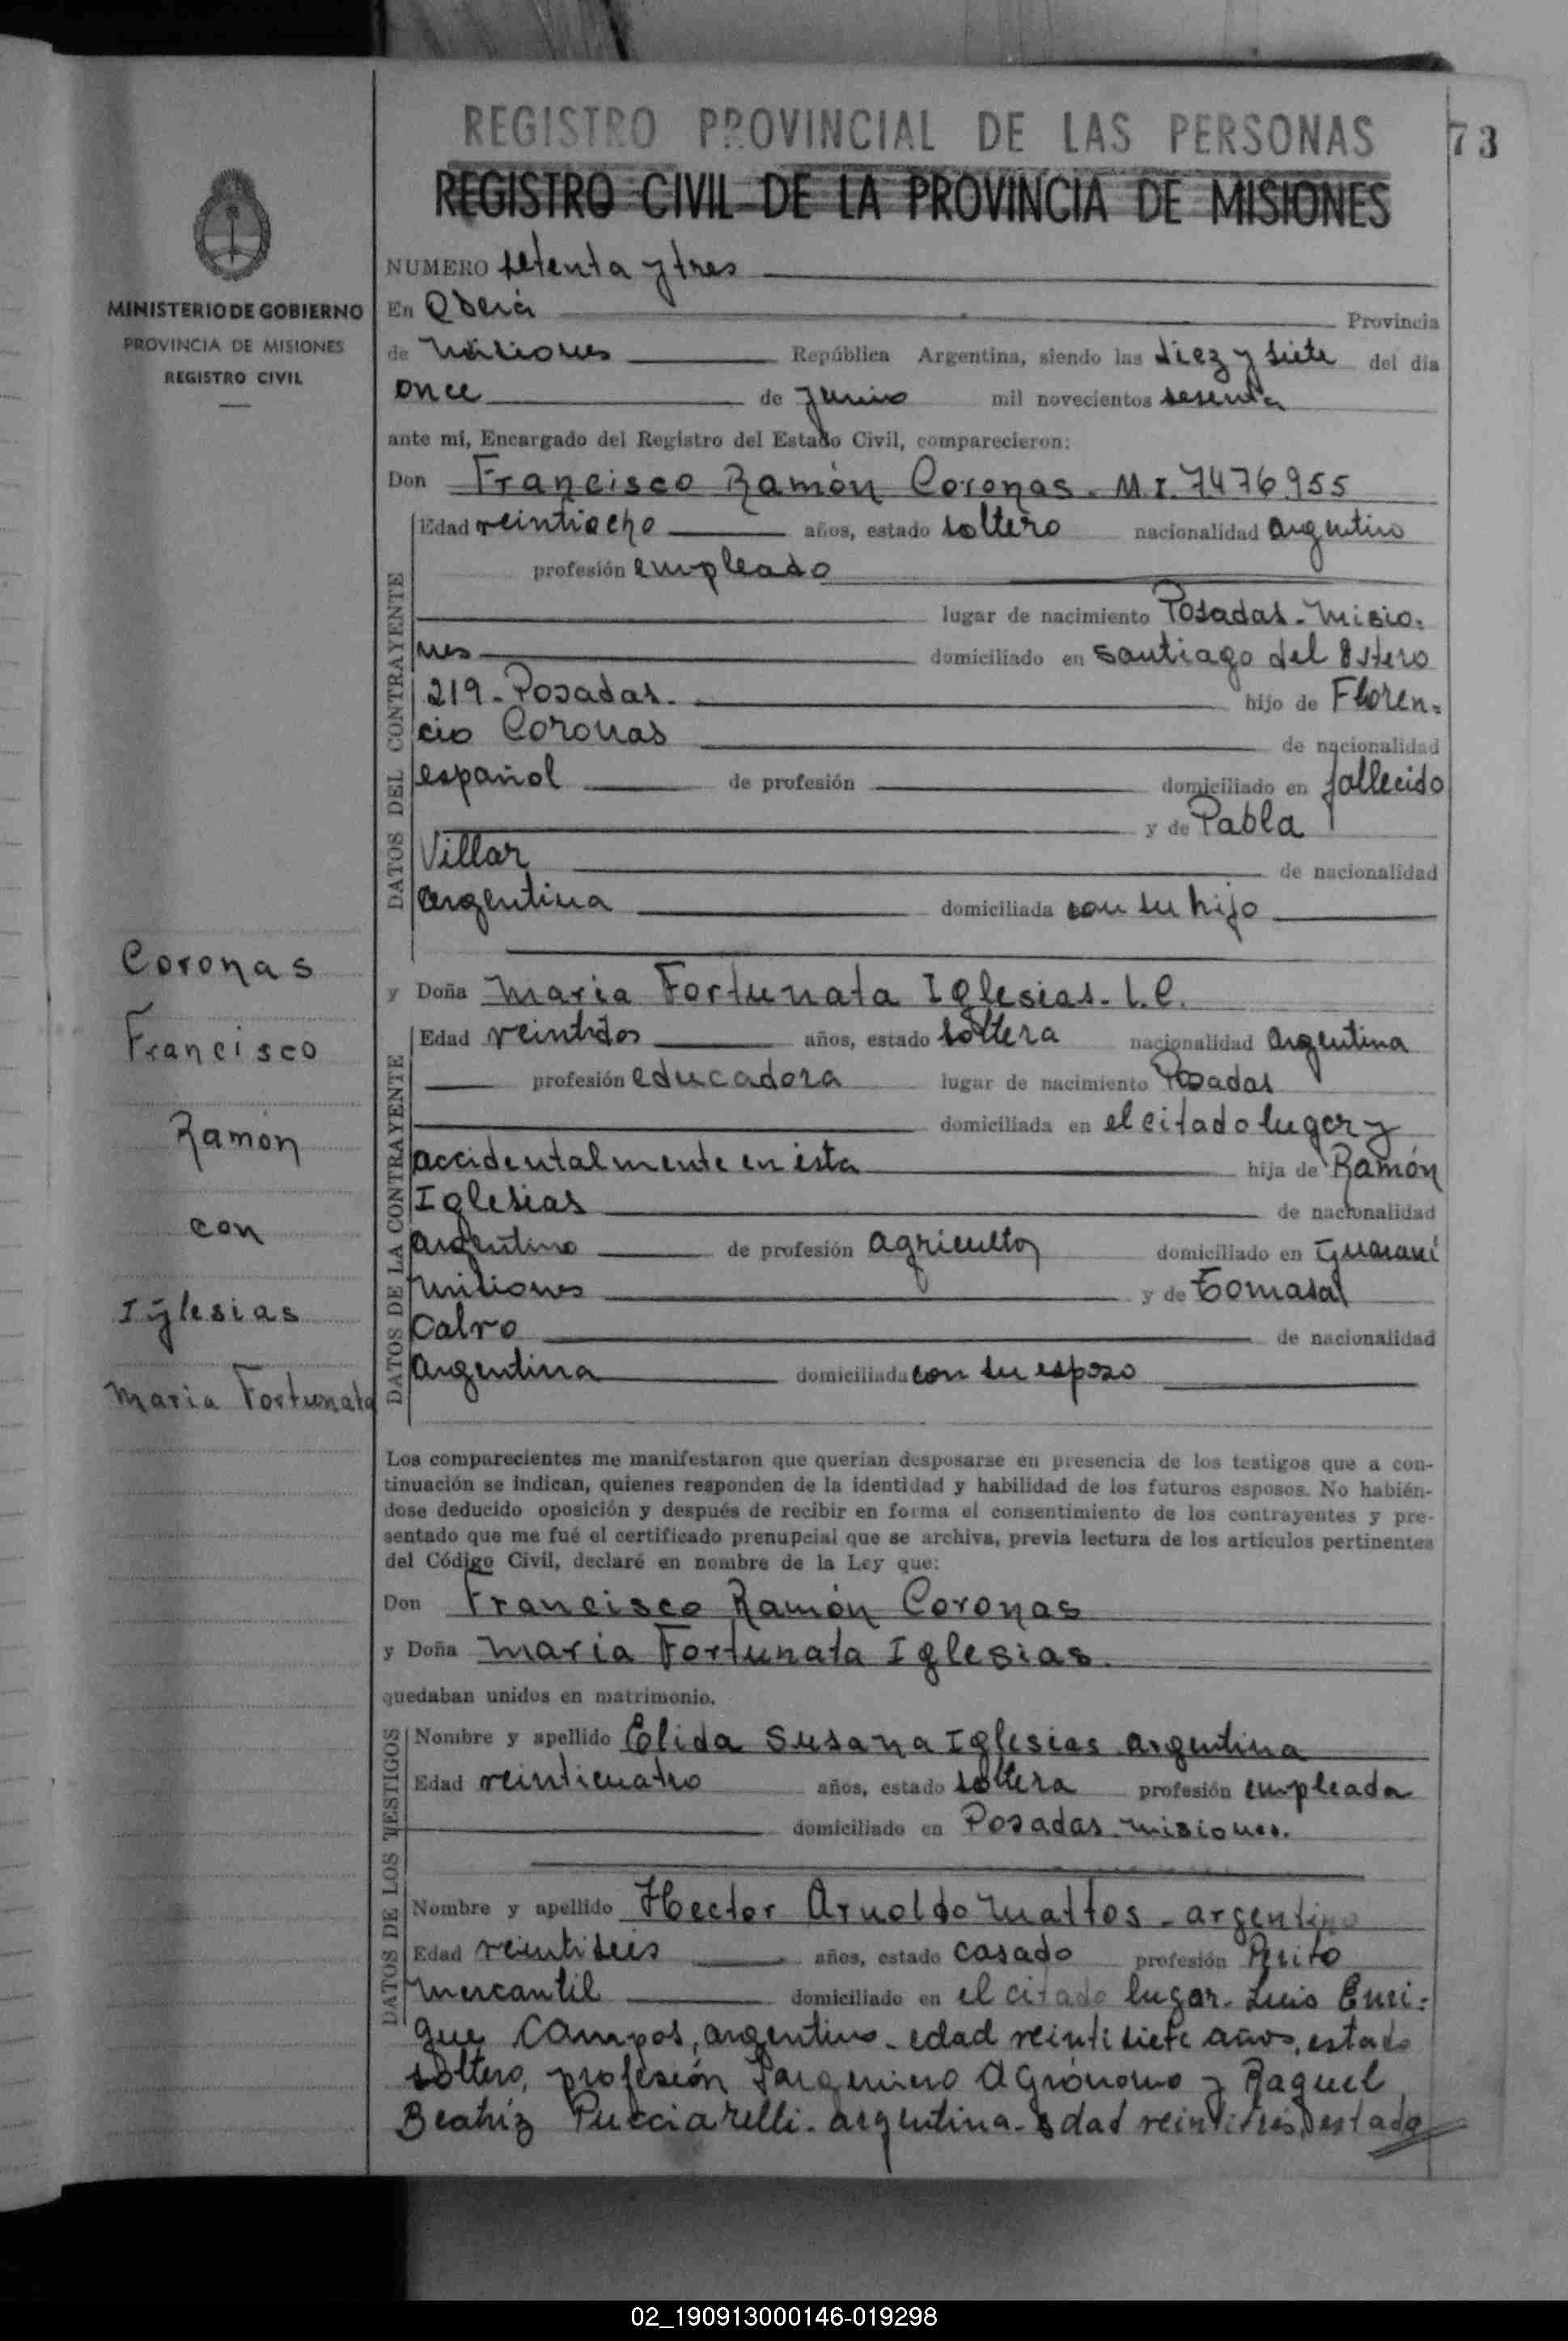 REGISTRO PROVINCIAL DE LAS PERSONAS
73
REGISTRO CIVIL DE LA PROVINCIA DE MISIONES
MINISTERIO DE GOBIERNO
PROVINCIA DE MISIONES
REGISTRO CIVIL
NUMERO setenta y tres
En Oberá Provincia
de Misiones República Argentina, siendo las diez y siete del día
once de junio mil novecientos sesenta
ante mí, Encargado del Registro del Estado Civil, comparecieron:
Don Francisco Ramón Coronas. M.I. 7476955
DATOS DEL CONTRAYENTE
Edad veintiocho años, estado soltero nacionalidad argentino
profesión empleado
lugar de nacimiento Posadas. Misio-
nes domiciliado en Santiago del Estero
219. Posadas. hijo de Floren-
cio Coronas de nacionalidad
español de profesión domiciliado en fallecido
y de Pabla
Villar de nacionalidad
argentina domiciliada con su hijo
Coronas
Francisco
Ramón
con
Iglesias
Maria Fortunata
y Doña Maria Fortunata Iglesias. L.C.
DATOS DE LA CONTRAYENTE
Edad veintidos años, estado soltera nacionalidad argentina
profesión educadora lugar de nacimiento Posadas
domiciliada en el citado lugar y
accidentalmente en ésta hija de Ramón
Iglesias de nacionalidad
argentino de profesión agricultor domiciliado en Guaraní
Misiones y de Tomasa
Calvo de nacionalidad
Argentina domiciliada con su esposo
Los comparecientes me manifestaron que querían desposarse en presencia de los testigos que a con-
tinuación se indican, quienes responden de la identidad y habilidad de los futuros esposos. No habién-
dose deducido oposición y después de recibir en forma el consentimiento de los contrayentes y pre-
sentado que me fué el certificado prenupcial que se archiva, previa lectura de los artículos pertinentes
del Código Civil, declaré en nombre de la Ley que:
Don Francisco Ramón Coronas
y Doña Maria Fortunata Iglesias.
quedaban unidos en matrimonio.
DATOS DE LOS TESTIGOS
Nombre y apellido Elida Susana Iglesias argentina
Edad veinticuatro años, estado soltera profesión empleada
domiciliado en Posadas Misiones.
Nombre y apellido Hector Arnoldo Mattos - argentino
Edad veintiseis años, estado casado profesión Perito
Mercantil domiciliado en el citado lugar. Luis Enri-
que Campos, argentino. edad veintisiete años, estado
soltero, profesión Agrónomo y Raquel
Beatriz Pucciarelli. argentina. edad veintitrés, estado
02_190913000146-019298